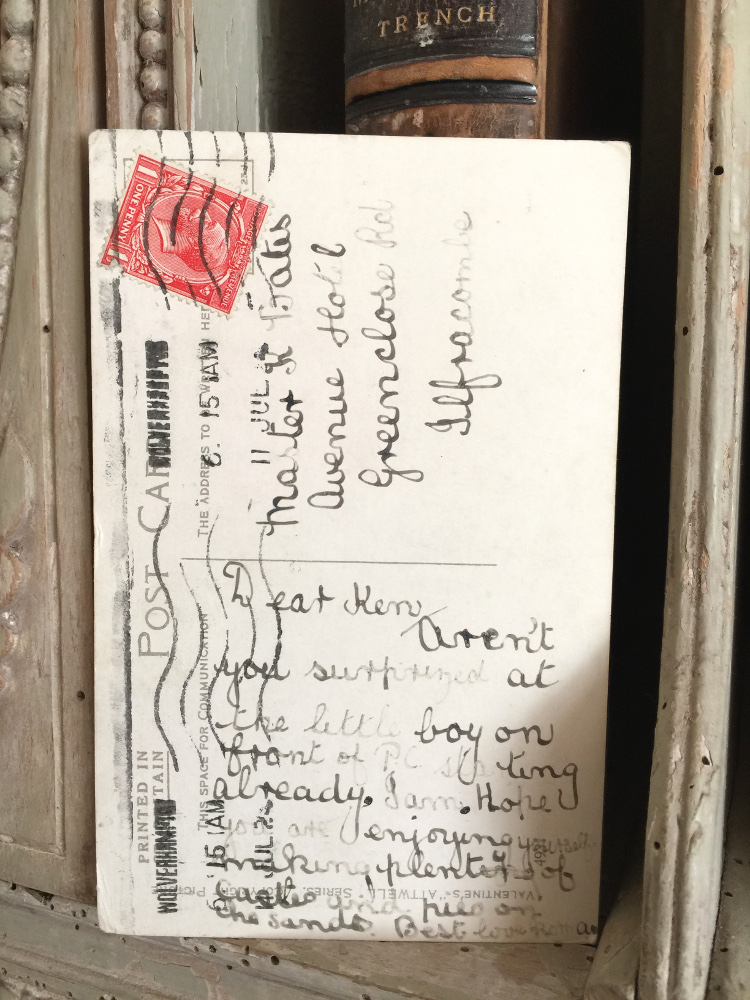 TRENCH
ONE PENNY
POST CARD
PRINTED IN
THIS SPACE FOR COMMUNICATION
THE ADDRESS TO BE WRITTEN HERE
WOLVERHAMPTON
6. 15 AM
11 JUL
Master K Bates
Avenue Hotel
Greenclose Rd
Ilfracombe
Dear Ken
Aren't
you surprized at
the little boy on
front of P.C. starting
already. I am. Hope
you are enjoying yourself
making plenty of
castles and pies on
the sands. Best love
VALENTINE'S "ATTWELL" SERIES. COPYRIGHT PICTURE